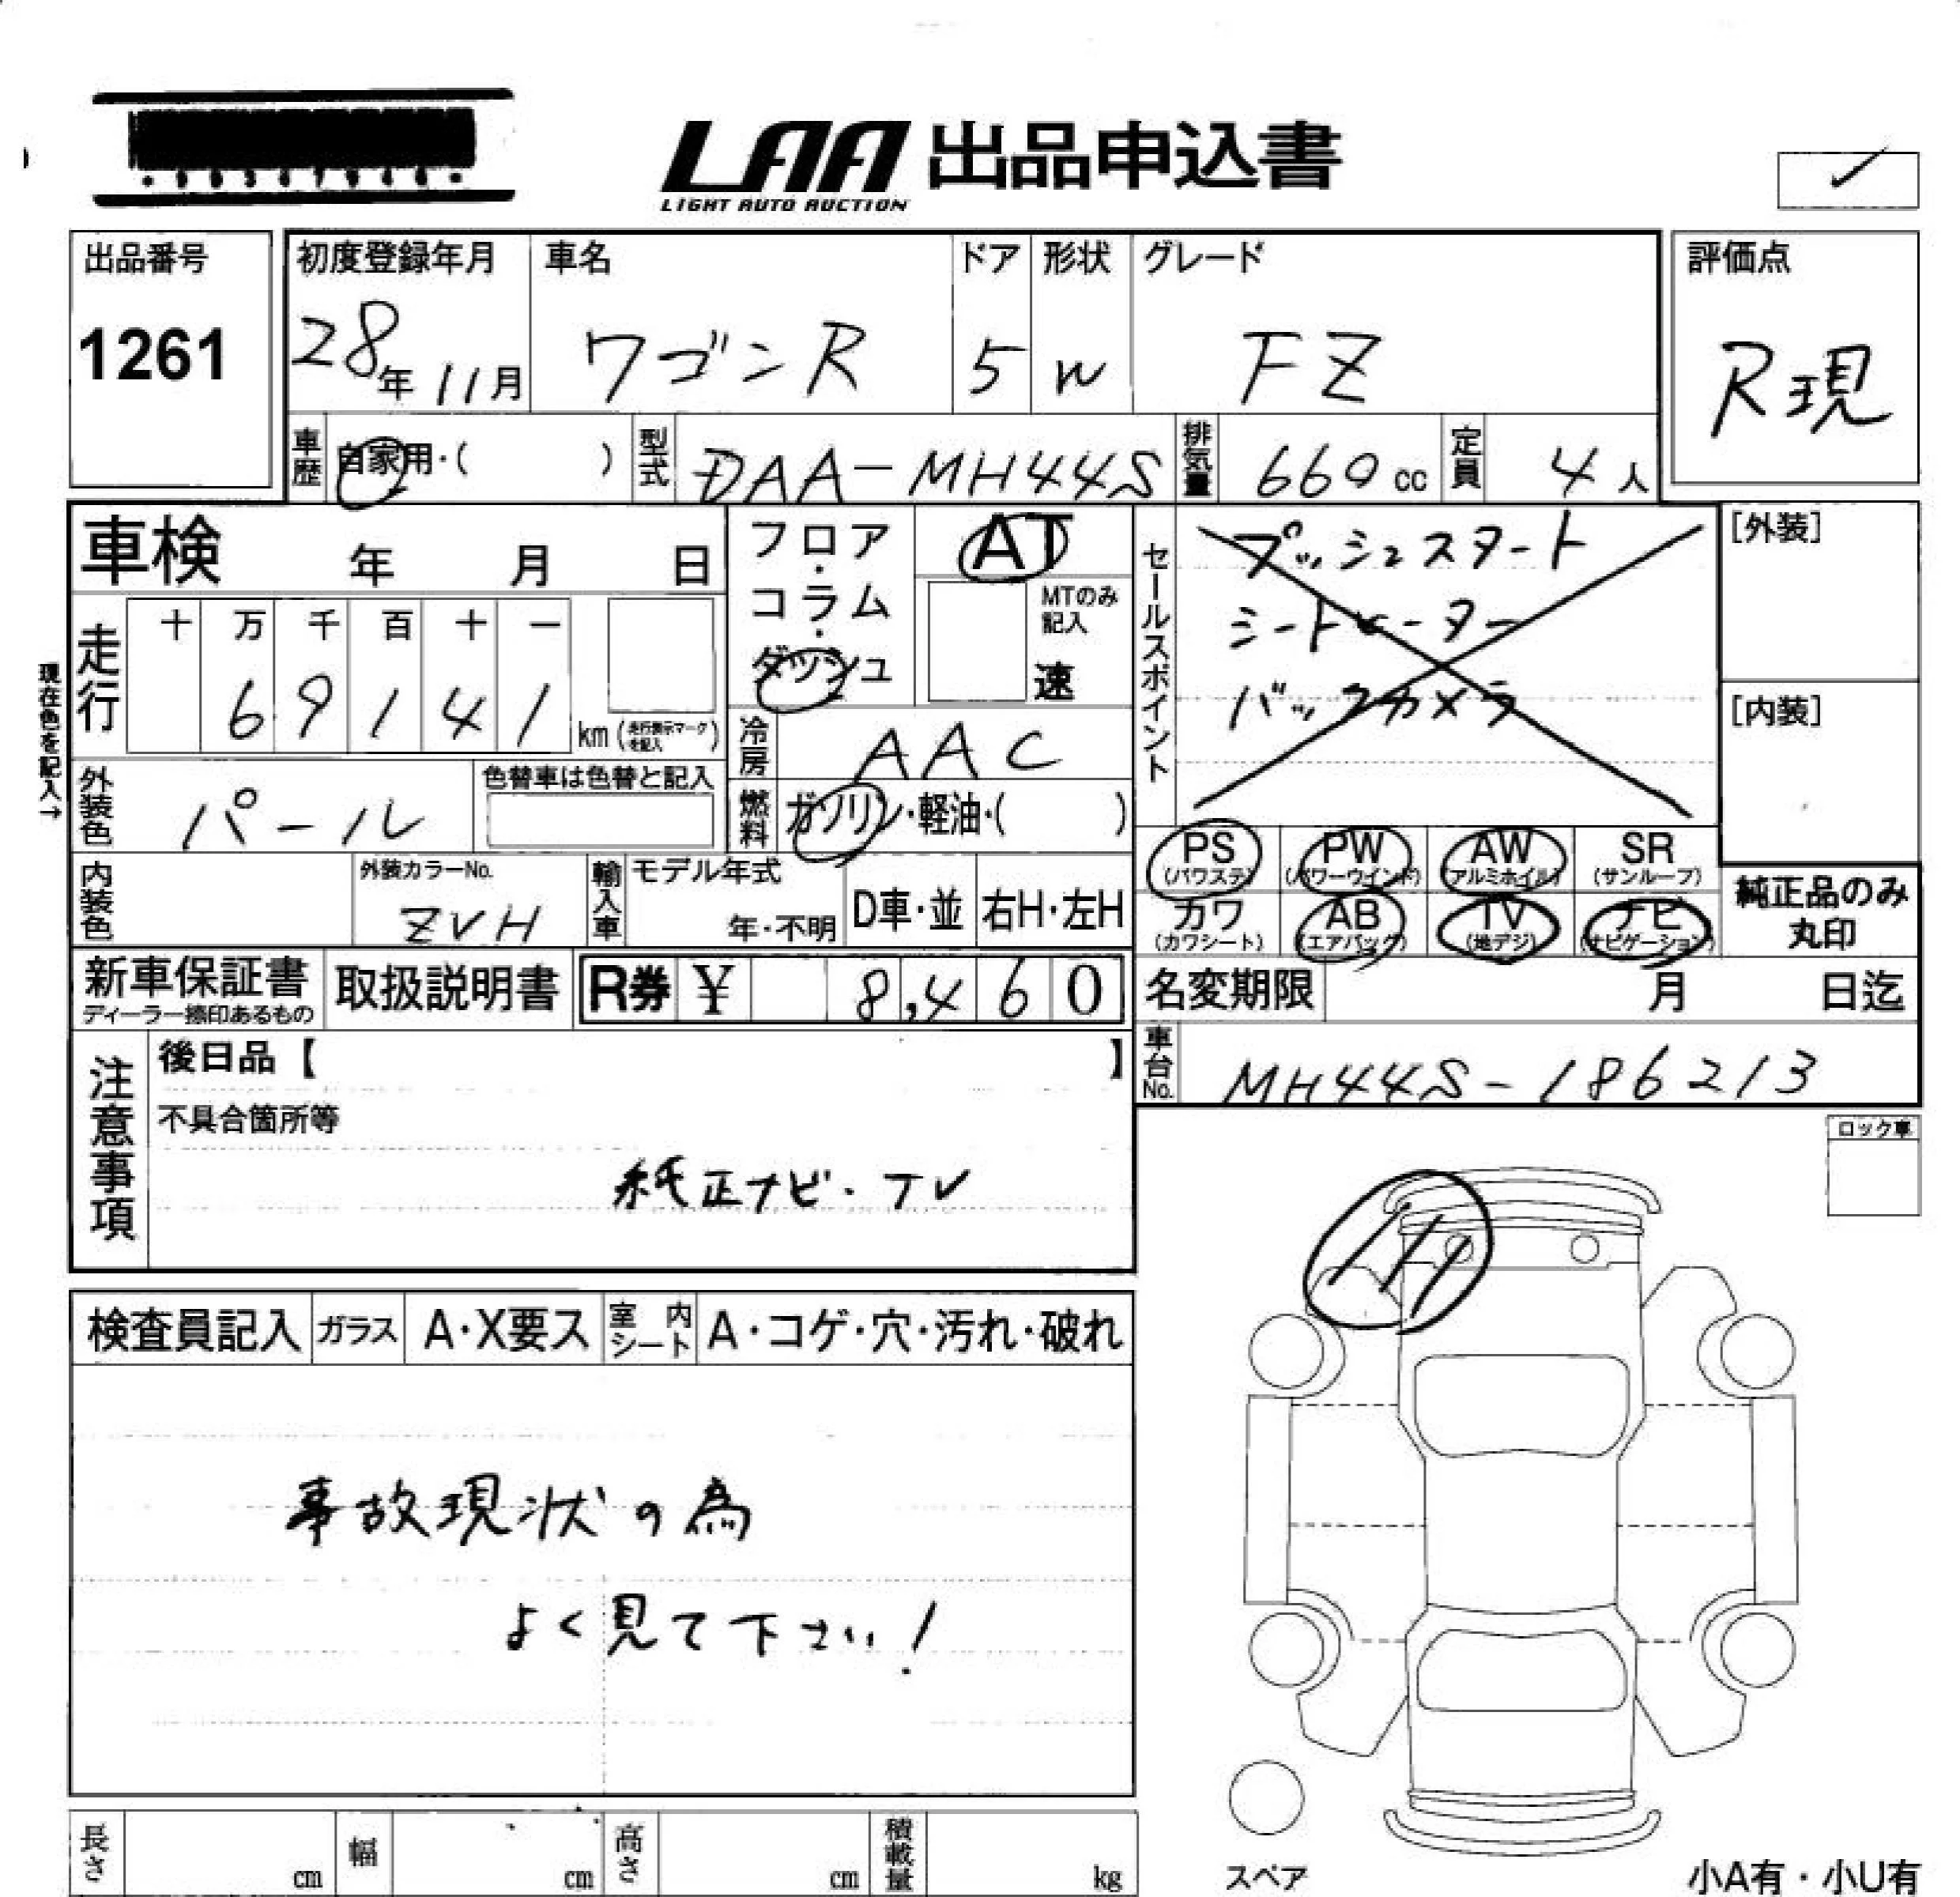 LAA 出品申込書
LIGHT AUTO AUCTION
出品番号
1261
初度登録年月
28年11月
車名
ワゴンR
ドア
5
形状
W
グレード
FZ
評価点
R現
車歴
自家用・( )
型式
DAA-MH44S
排気量
660 cc
定員
4人
車検 年 月 日
走行
十 万 千 百 十 一
6 9 1 4 1
km (走行表示マークを記入)
現在色を記入→
フロア・コラム・ダッシュ
AT
MTのみ記入
速
冷房
AAC
燃料
ガソリン・軽油・( )
セールスポイント
プッシュスタート
シートヒーター
バックカメラ
[外装]
[内装]
外装色
パール
色替車は色替と記入
内装色
外装カラーNo.
ZVH
輸入車
モデル年式
年・不明
D車・並
右H・左H
PS (パワステ)
PW (パワーウインド)
AW (アルミホイル)
SR (サンルーフ)
カワ (カワシート)
AB (エアバック)
TV (地デジ)
ナビ (ナビゲーション)
純正品のみ
丸印
新車保証書
ディーラー捺印あるもの
取扱説明書
R券 ¥ 8,460
名変期限 月 日迄
車台No.
MH44S-186213
注意事項
後日品【 】
不具合箇所等
純正ナビ・TV
ロック車
検査員記入
ガラス
A・X要ス
室内シート
A・コゲ・穴・汚れ・破れ
事故現状の為
よく見て下さい!
長さ cm
幅 cm
高さ cm
積載量 kg
スペア
小A有・小U有